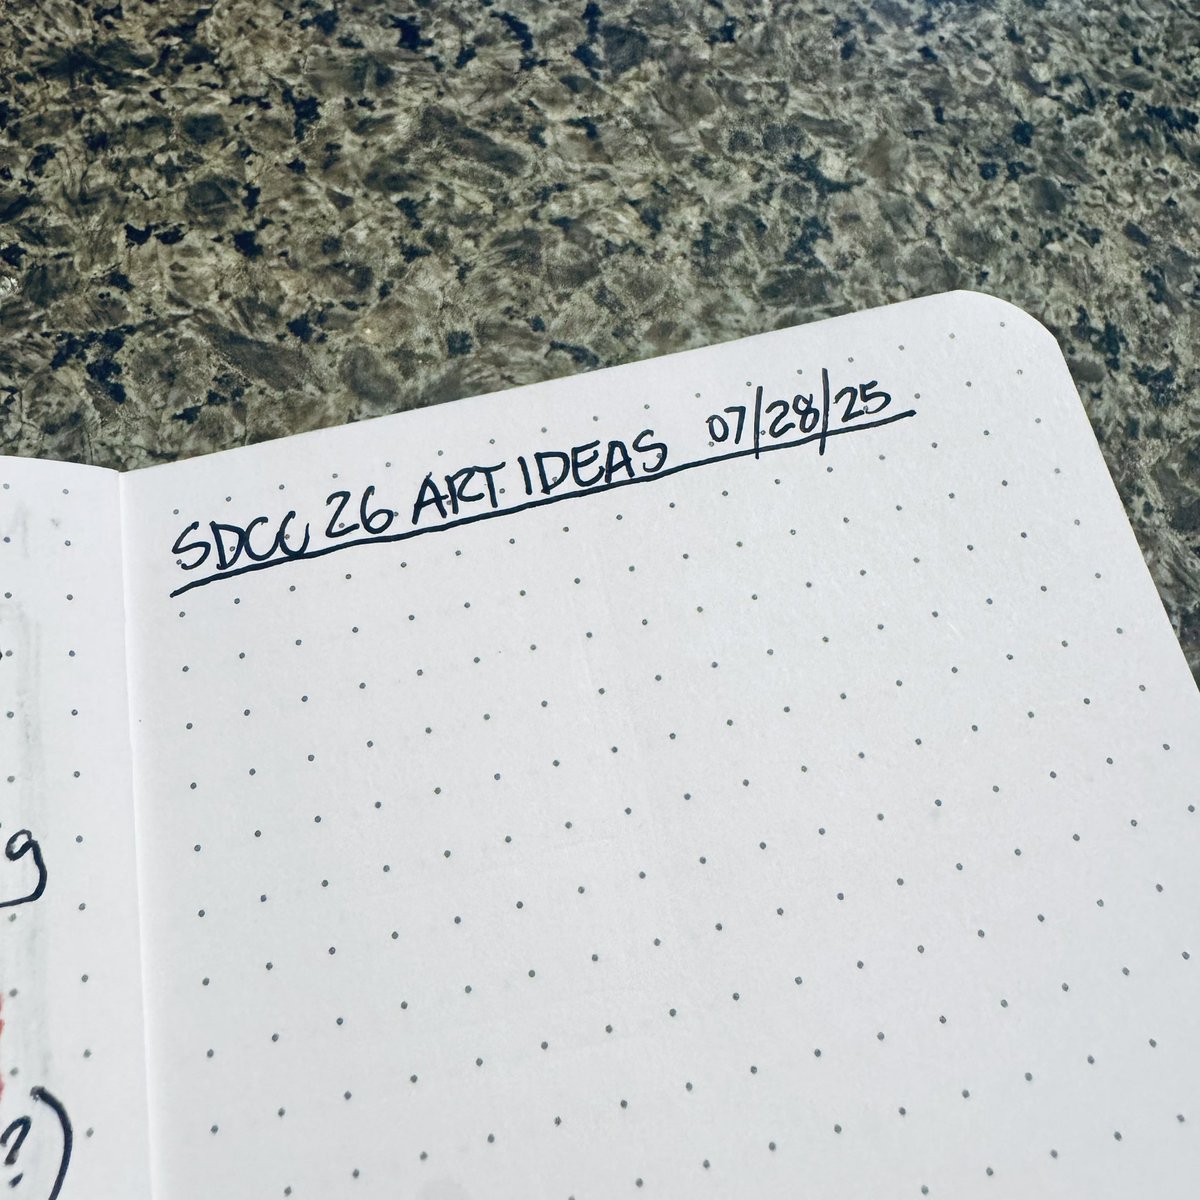 SDCC 26 ART IDEAS 07/28/25
g
?)